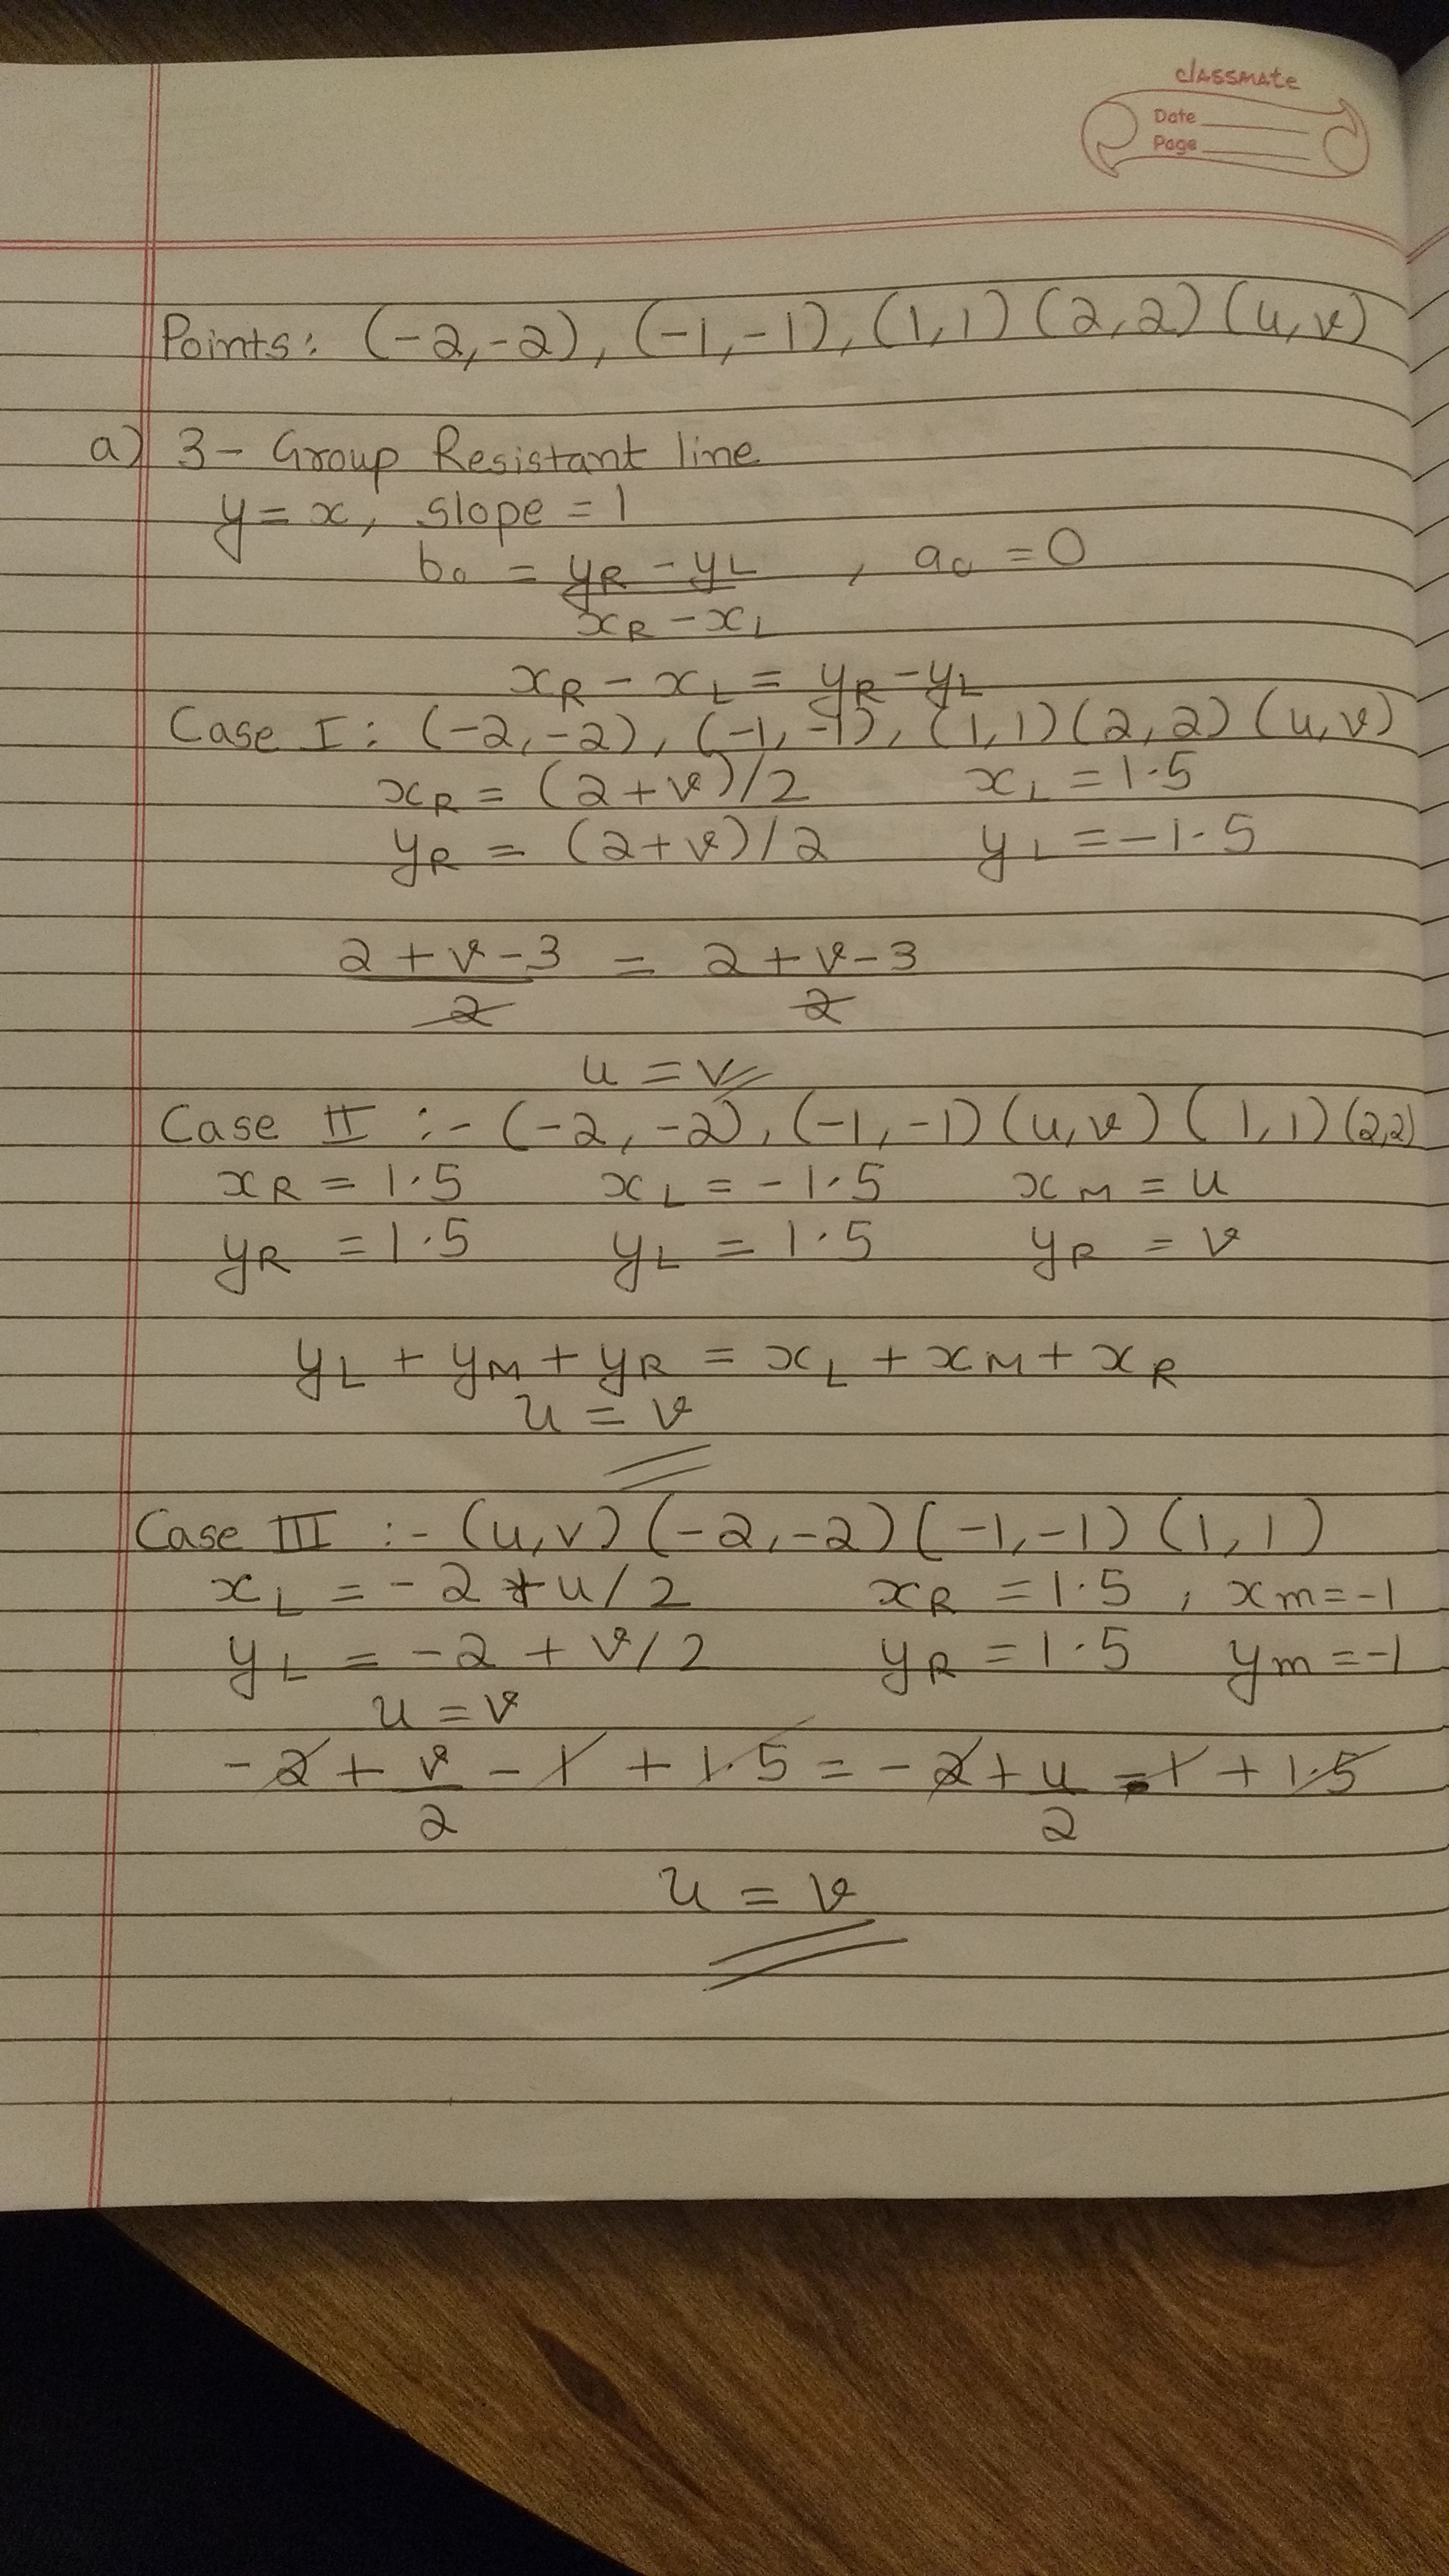 classmate
Date
Page
Points: (-2,-2), (-1,-1), (1,1) (2,2) (u,v)
a) 3- Group Resistant line
y = x, slope = 1
b₀ = (yR - yL)/(xR - xL) , a₀ = 0
xR - xL = yR - yL
Case I : (-2,-2), (-1,-1), (1,1) (2,2) (u,v)
xR = (2+v)/2 xL = 1.5
yR = (2+v)/2 yL = -1.5
(2+v-3)/2 = (2+v-3)/2
u = v
Case II :- (-2,-2), (-1,-1) (u,v) (1,1) (2,2)
xR = 1.5 xL = -1.5 xM = u
yR = 1.5 yL = 1.5 yR = v
yL + yM + yR = xL + xM + xR
u = v
Case III :- (u,v) (-2,-2) (-1,-1) (1,1)
xL = -2+u/2 xR = 1.5 , xm = -1
yL = -2+v/2 yR = 1.5 ym = -1
u = v
-2 + v/2 - 1 + 1.5 = -2 + u/2 - 1 + 1.5
u = v